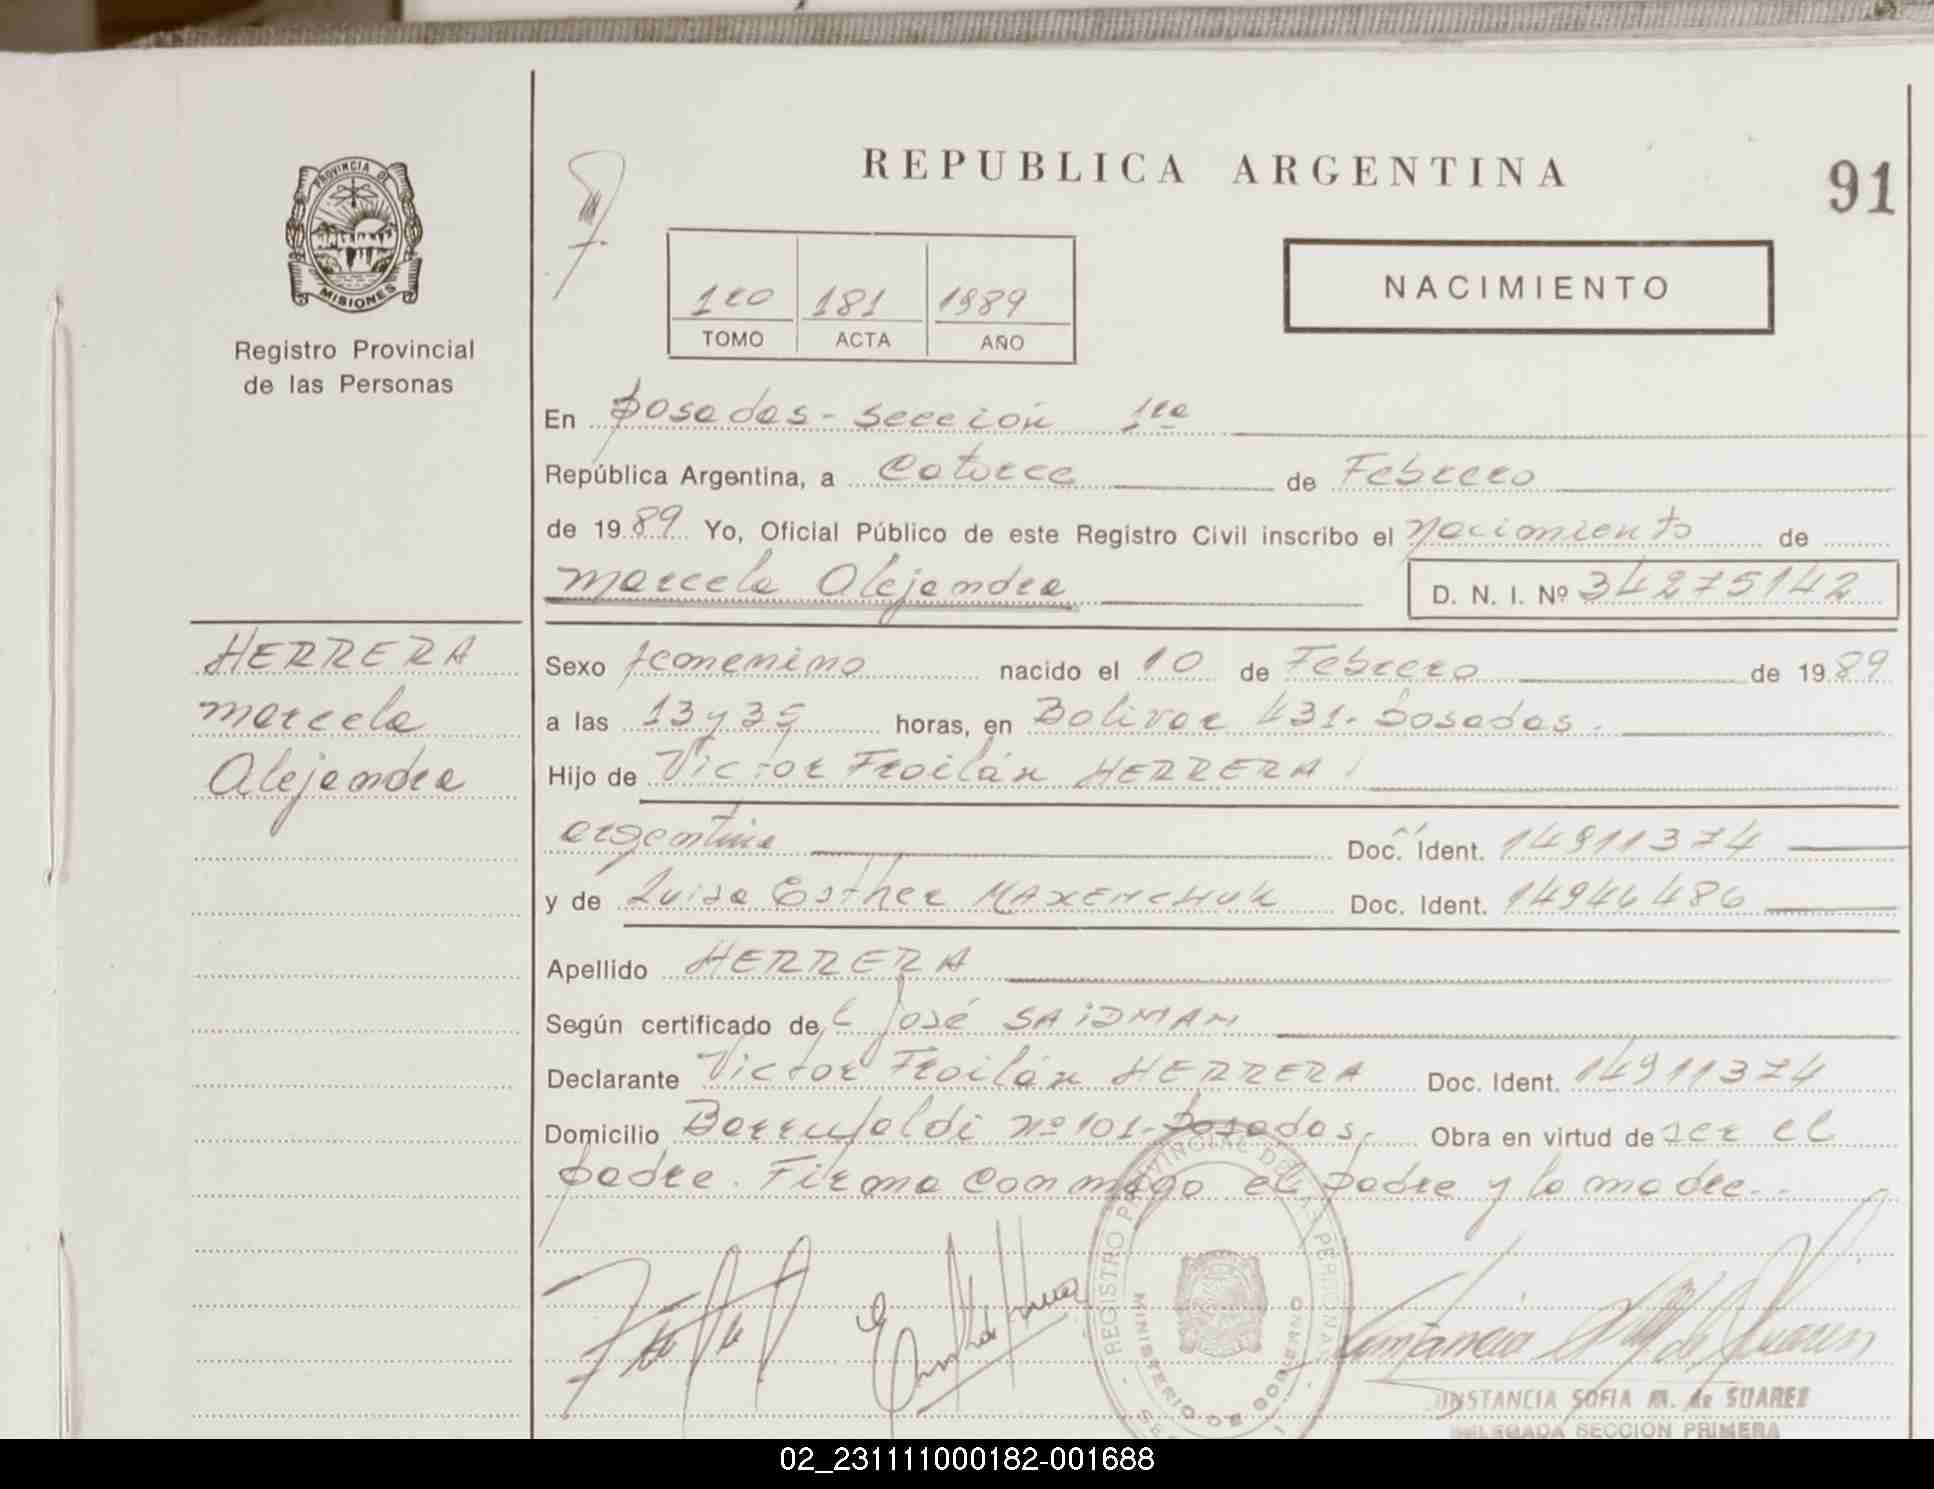 REPUBLICA ARGENTINA
91
PROVINCIA DE
MISIONES
Registro Provincial
de las Personas
1ro 181 1989
TOMO ACTA AÑO
NACIMIENTO
En Posadas - Sección 1ra
República Argentina, a Catorce de Febrero
de 1989 Yo, Oficial Público de este Registro Civil inscribo el Nacimiento de
Marcela Alejandra D. N. I. Nº 34275142
HERRERA
Marcela
Alejandra
Sexo femenino nacido el 10 de Febrero de 1989
a las 13 y 35 horas, en Bolivar 431. Posadas.
Hijo de Victor Froilán HERRERA
argentina Doc. Ident. 14911374
y de Luisa Esther MAXEMCHUK Doc. Ident. 14946486
Apellido HERRERA
Según certificado de José SAIDMAN
Declarante Victor Froilán HERRERA Doc. Ident. 14911374
Domicilio Nº 101. Posadas. Obra en virtud de ser el
padre. Firma conmigo el padre y la madre..
REGISTRO PROVINCIAL DE LAS PERSONAS
MINISTERIO DE GOBIERNO
SOFIA M. de SUAREZ
DELEGADA SECCION PRIMERA
02_231111000182-001688